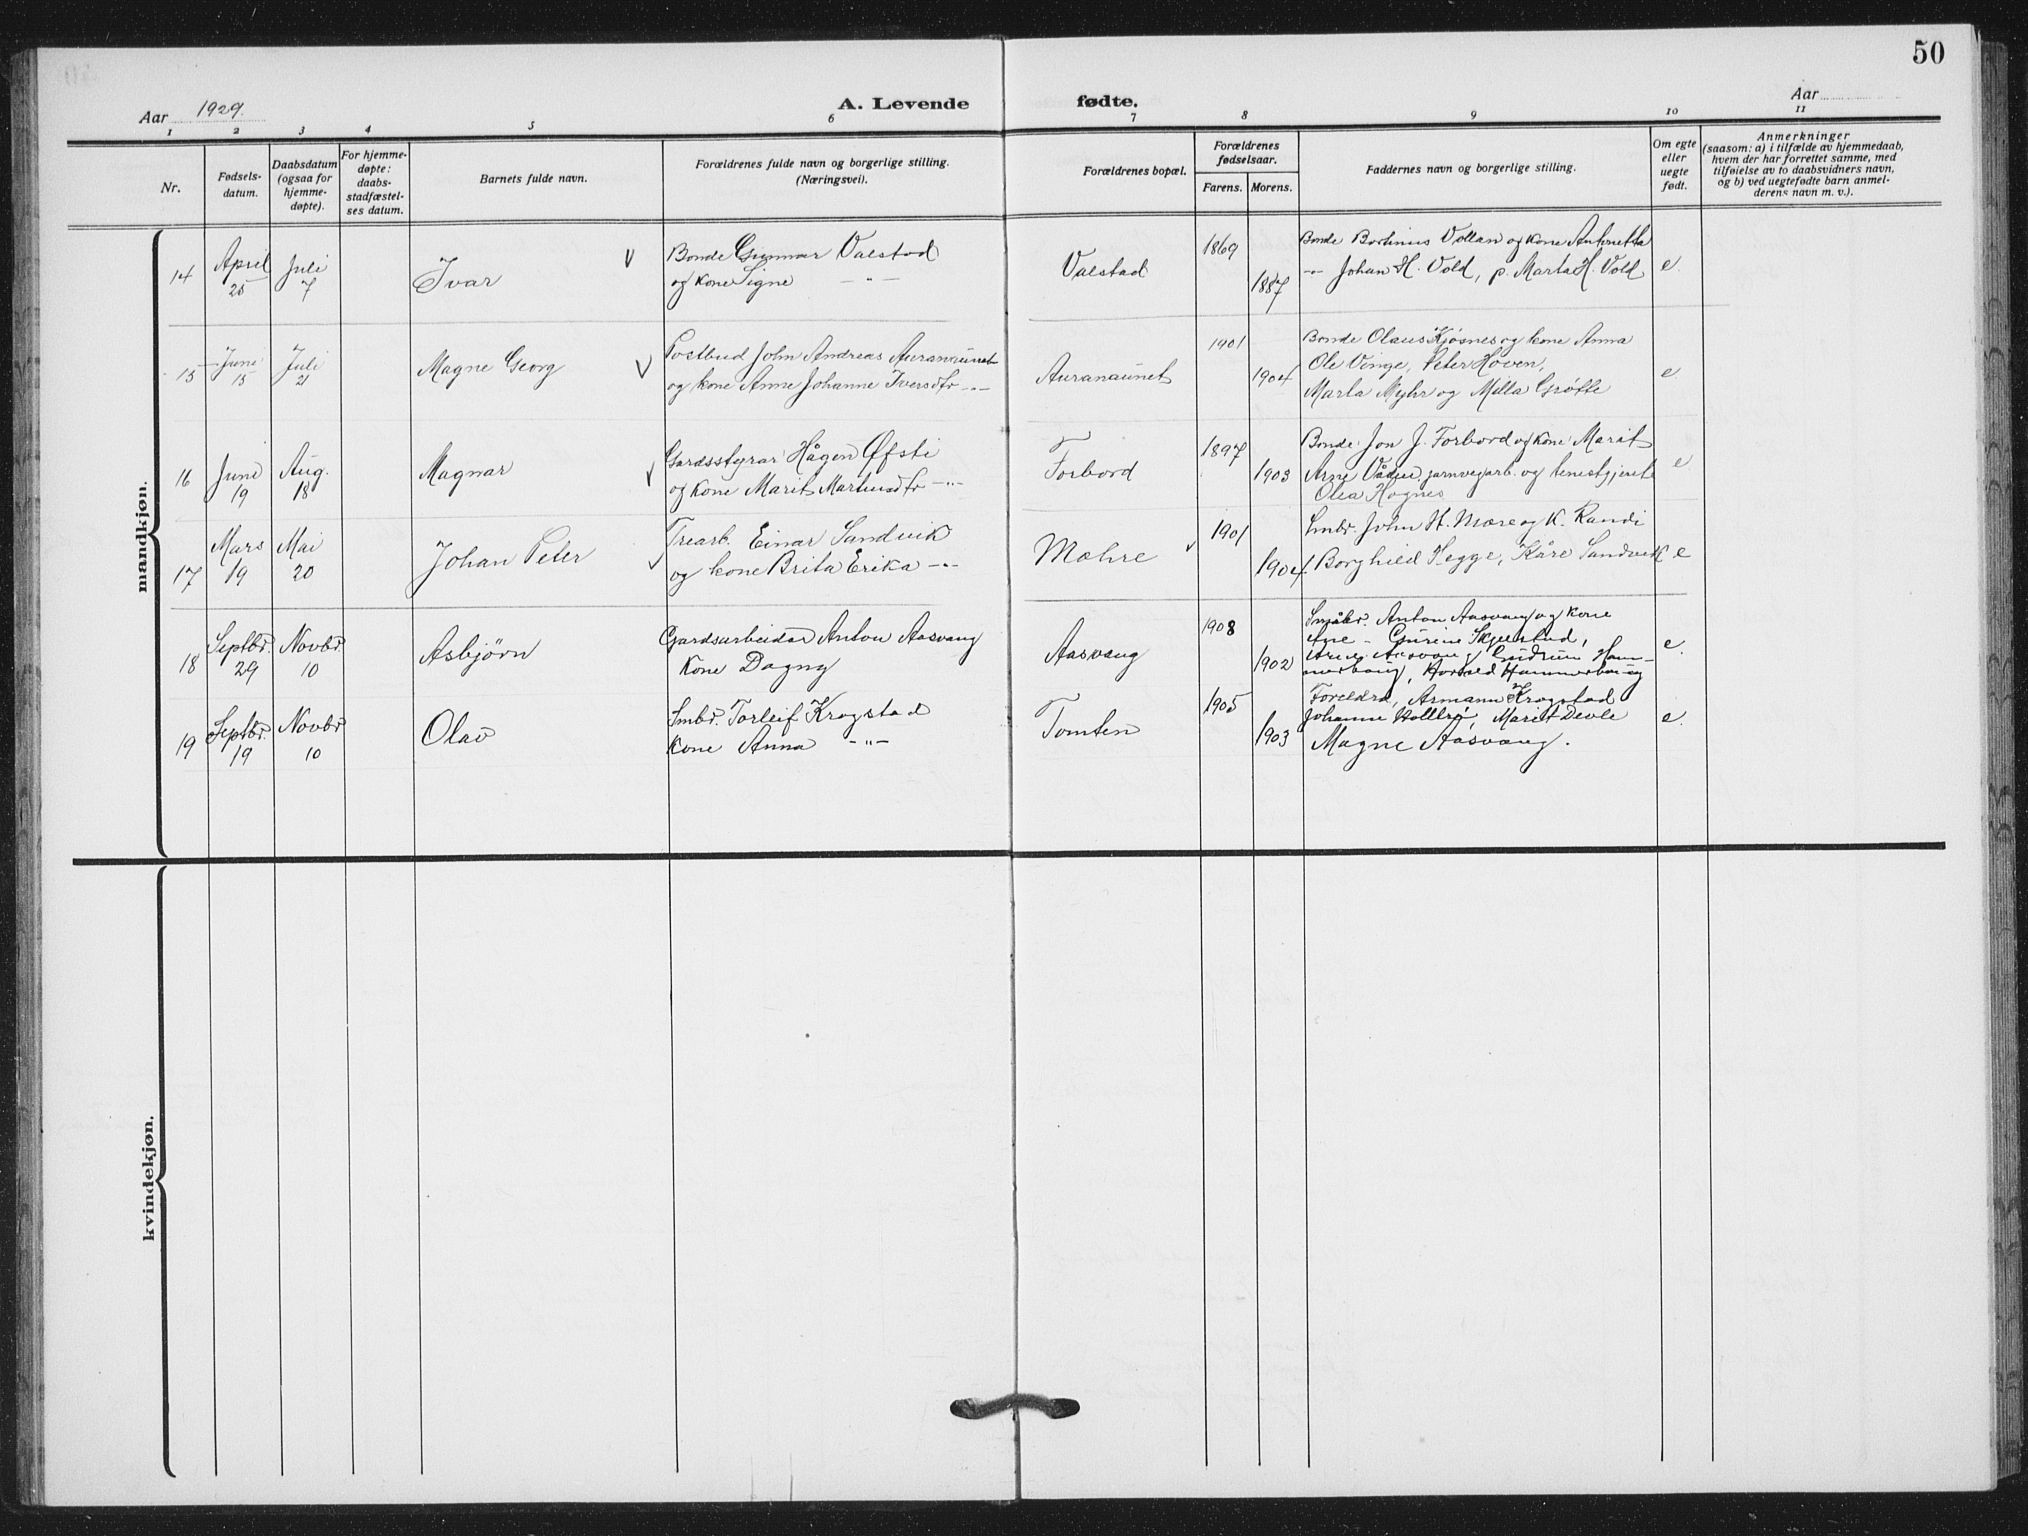 50
Aar 1929.
A. Levende fødte.
Aar
1 2 3 4 5 6 7 8 9 10 11
Nr.
Fødsels-
datum.
Daabsdatum
(ogsaa for
hjemme-
døpte).
For hjemme-
døpte:
daabs-
stadfæstel-
ses datum.
Barnets fulde navn.
Forældrenes fulde navn og borgerlige stilling.
(Næringsvei).
Forældrenes bopæl.
Forældrenes
fødselsaar.
Farens. Morens.
Faddernes navn og borgerlige stilling.
Om egte
eller
uegte
født.
Anmerkninger
(saasom: a) i tilfælde av hjemmedaab,
hvem der har forrettet samme, med
tilføielse av to daabsvidners navn,
og b) ved uegtefødte barn anmel-
derens navn m. v.).
mandkjøn.
14 April 25 Juli 7 Ivar
Bonde Gunnar Valstad
og kone Signe -"-
Valstad 1869 1887
Bonde Bortinus Vollan og kone Antonetta
-"- Johan H. Vold, p. Marta H. Vold
e.
15 June 15 Juli 21 Magne Georg
Postbud John Andreas Auranaunet
og kone Anne Johanne Iversdtr -"-
Auranaunet 1901 1904
Bonde Olaus Kjøsnes og kone Anna
Ole Vinge, Peter Hoven,
Marta Myhr og Milla Grøtte
e
16 June 19 Aug. 18 Magnar
Gardsstyrar Hågen Øfsti
og kone Marit Martinusdtr -"-
Forbord 1897 1903
Bonde Jon J. Forbord og kone Marit
Arne Vådne, jarnvegarb. og tenestgjente
Olea Hognes
e
17 Mars 19 Mai 20 Johan Peter
Trearb. Einar Sandvik
og kone Brita Erika -"-
Mæhre 1901 1904
Smbr. John H. Mære og K. Randi
Borghild Hegge, Kåre Sandvik
e
18 Septbr. 29 Novbr. 10 Asbjørn
Gardsarbeidar Anton Aasvang
Kone Dagny
Aasvang 1908 1902
Småbr. Anton Aasvang og kone
Ane - Gurine Skjelstad,
Arne Aasvang, Gudrun Ham-
merbaug, Hammerbaug
e.
19 Septbr. 19 Novbr 10 Olav
Smbr. Torleif Krogstad
Kone Anna -"-
Tomten 1905 1903
Foreldra, Armann Krogstad
Johanne, Marit Devle
Magne Aasvang.
e.
kvindekjøn.